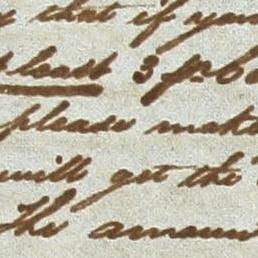 that if you
least 3
please make
will get the
The amoun